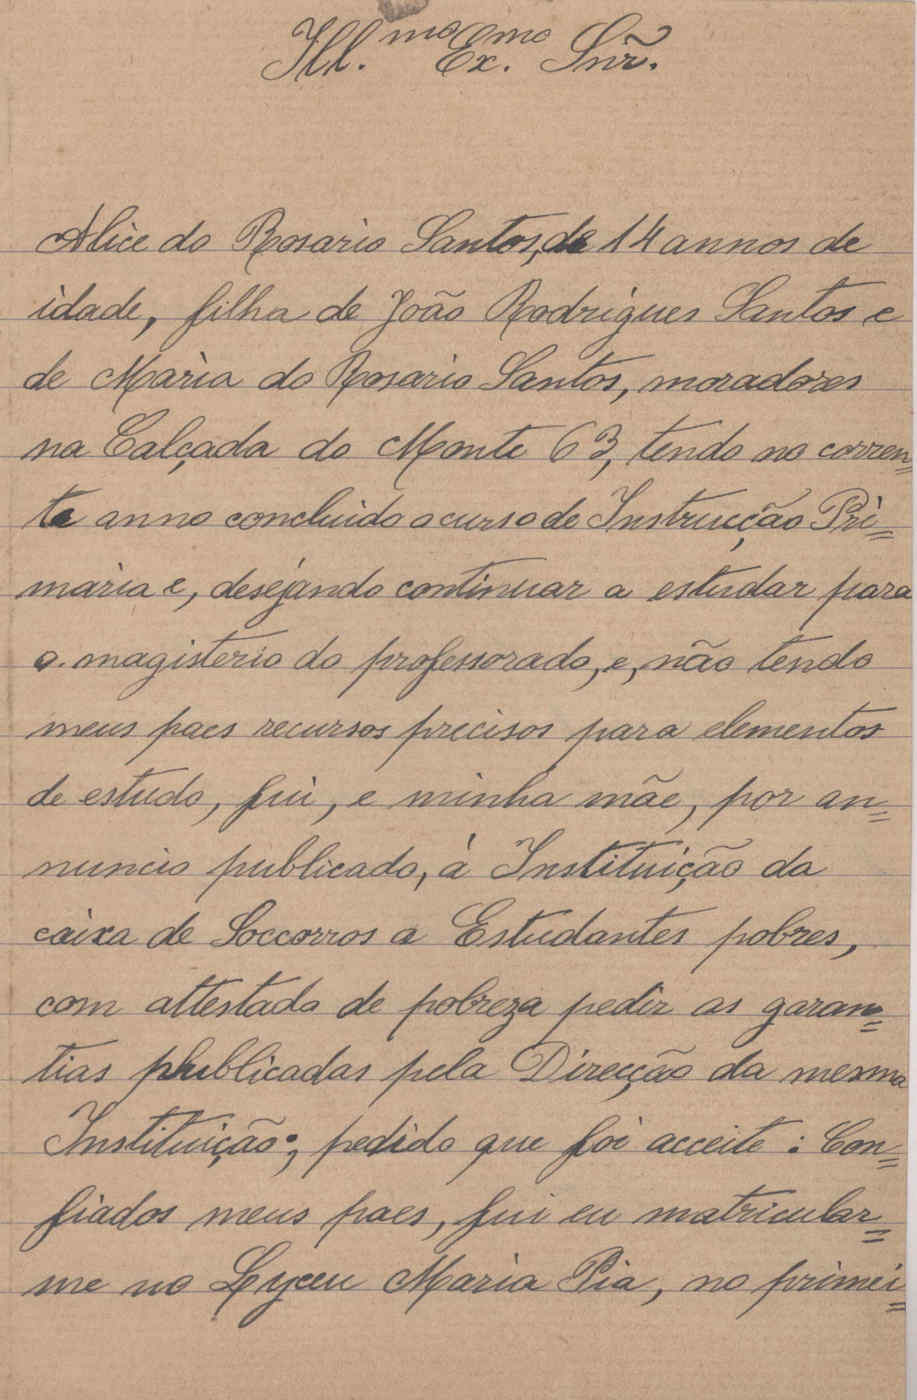 Ill.mo Ex.mo Snr.
Alice do Rosario Santos, de 14 annos de
idade, filha de João Rodrigues Santos e
de Maria do Rosario Santos, moradores
na Calçada do Monte 63, tendo no corren=
te anno concluido o curso de Instrucção Pri=
maria e, desejando continuar a estudar para
o magisterio do professorado, e, não tendo
meus paes recursos precisos para elementos
de estudo, fui, e minha mãe, por an=
nuncio publicado, á Instituição da
caixa de Soccorros a Estudantes pobres,
com attestado de pobreza pedir as garan=
tias publicadas pela Direcção da mesma
Instituição; pedido que foi acceite: Con=
fiados meus paes, fui eu matricular=
me no Lyceu Maria Pia, no primei=